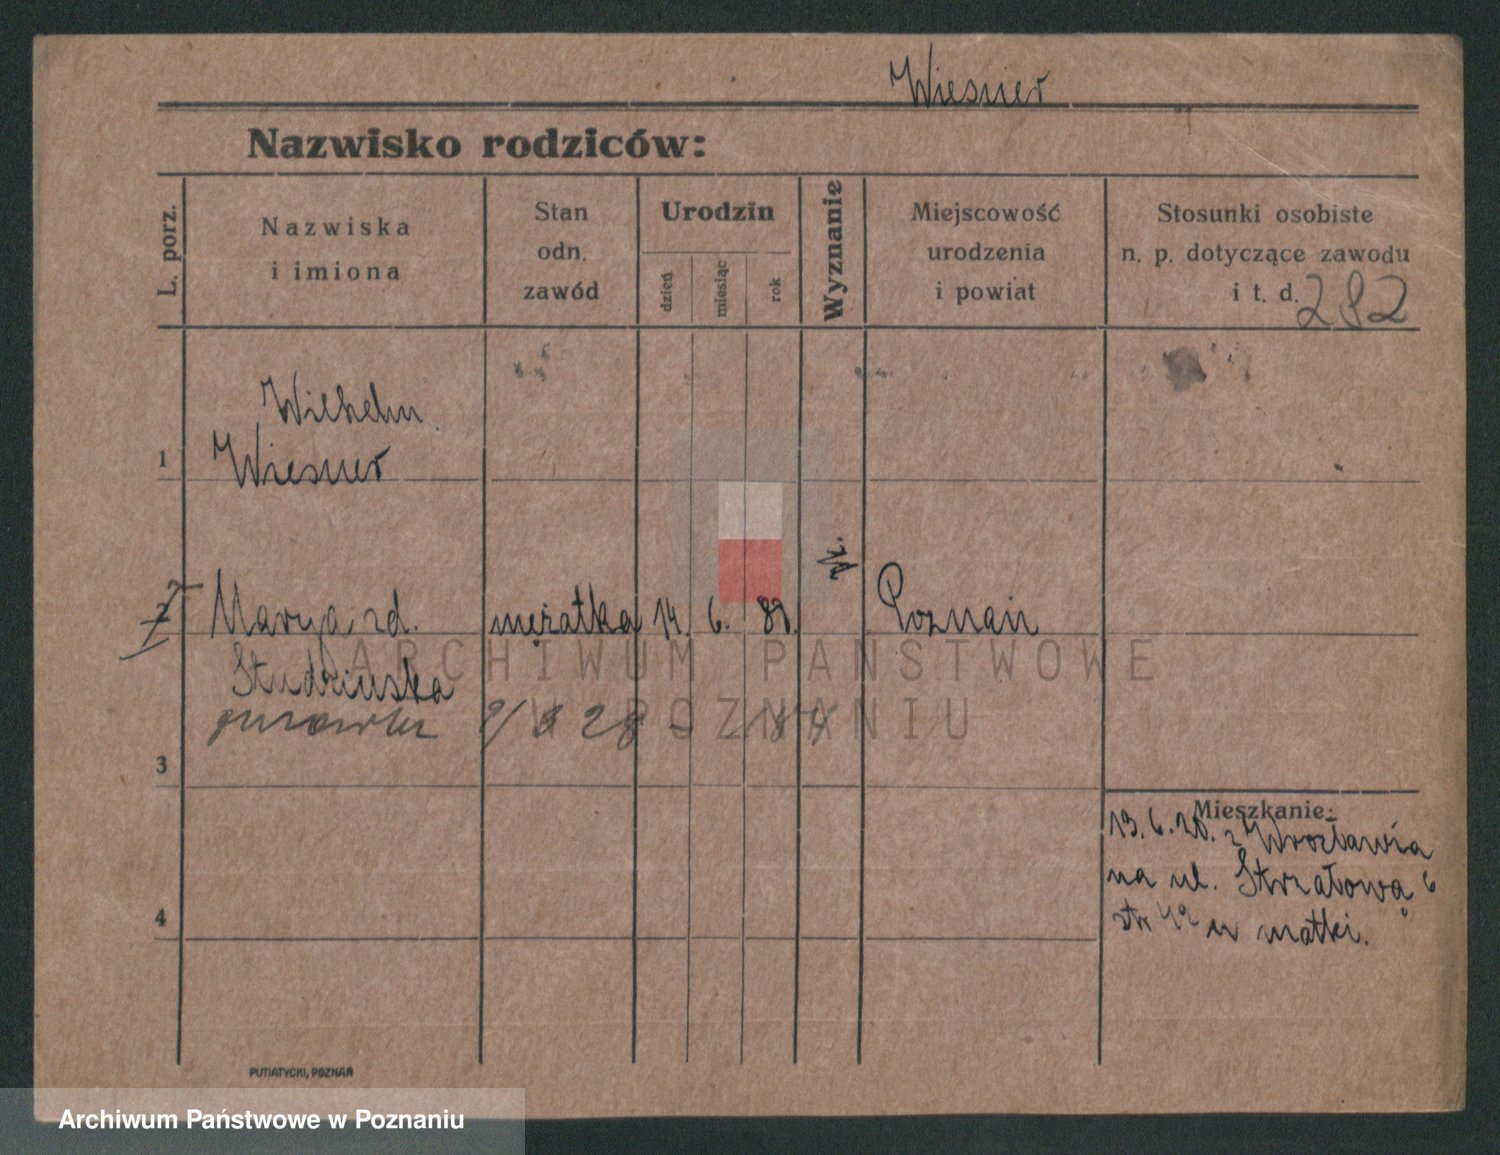 Wiesner
Nazwisko rodziców:
L. porz.
Nazwiska
i imiona
Stan
odn.
zawód
Urodzin
dzień
miesiąc
rok
Wyznanie
Miejscowość
urodzenia
i powiat
Stosunki osobiste
n. p. dotyczące zawodu
i t. d.
282
Wilhelm
1 Wiesner
2 Marya zd. mężatka 14. 6. 89. Poznań
Studzinska
3
Mieszkanie:
13. 6. 20. z Wrocławia
na ul. Strzałową 6
u matki.
4
PUTIATYCKI, POZNAŃ
ARCHIWUM PAŃSTWOWE
W POZNANIU
Archiwum Państwowe w Poznaniu